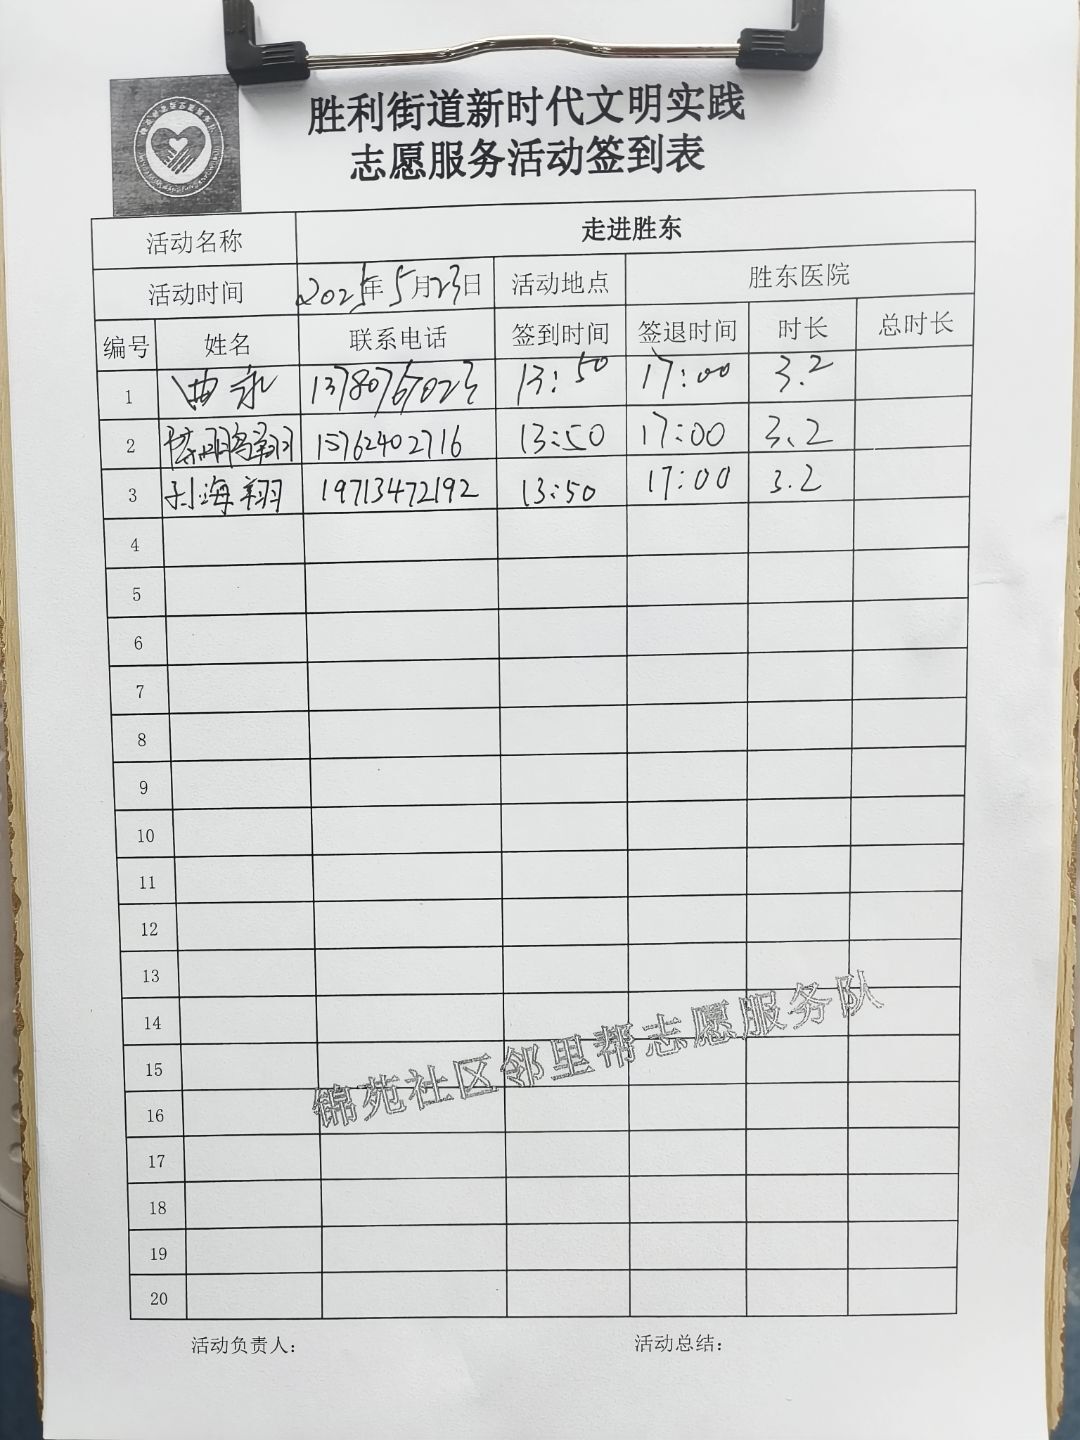 胜利街道新时代文明实践
志愿服务活动签到表
活动名称 走进胜东
活动时间 2025年5月23日 活动地点 胜东医院
编号 姓名 联系电话 签到时间 签退时间 时长 总时长
1 13780767023 13:50 17:00 3.2
2 陈鹏翔 15762402716 13:50 17:00 3.2
3 孙海翔 19713472192 13:50 17:00 3.2
4
5
6
7
8
9
10
11
12
13
14
15
16
17
18
19
20
锦苑社区邻里帮志愿服务队
活动负责人： 活动总结：